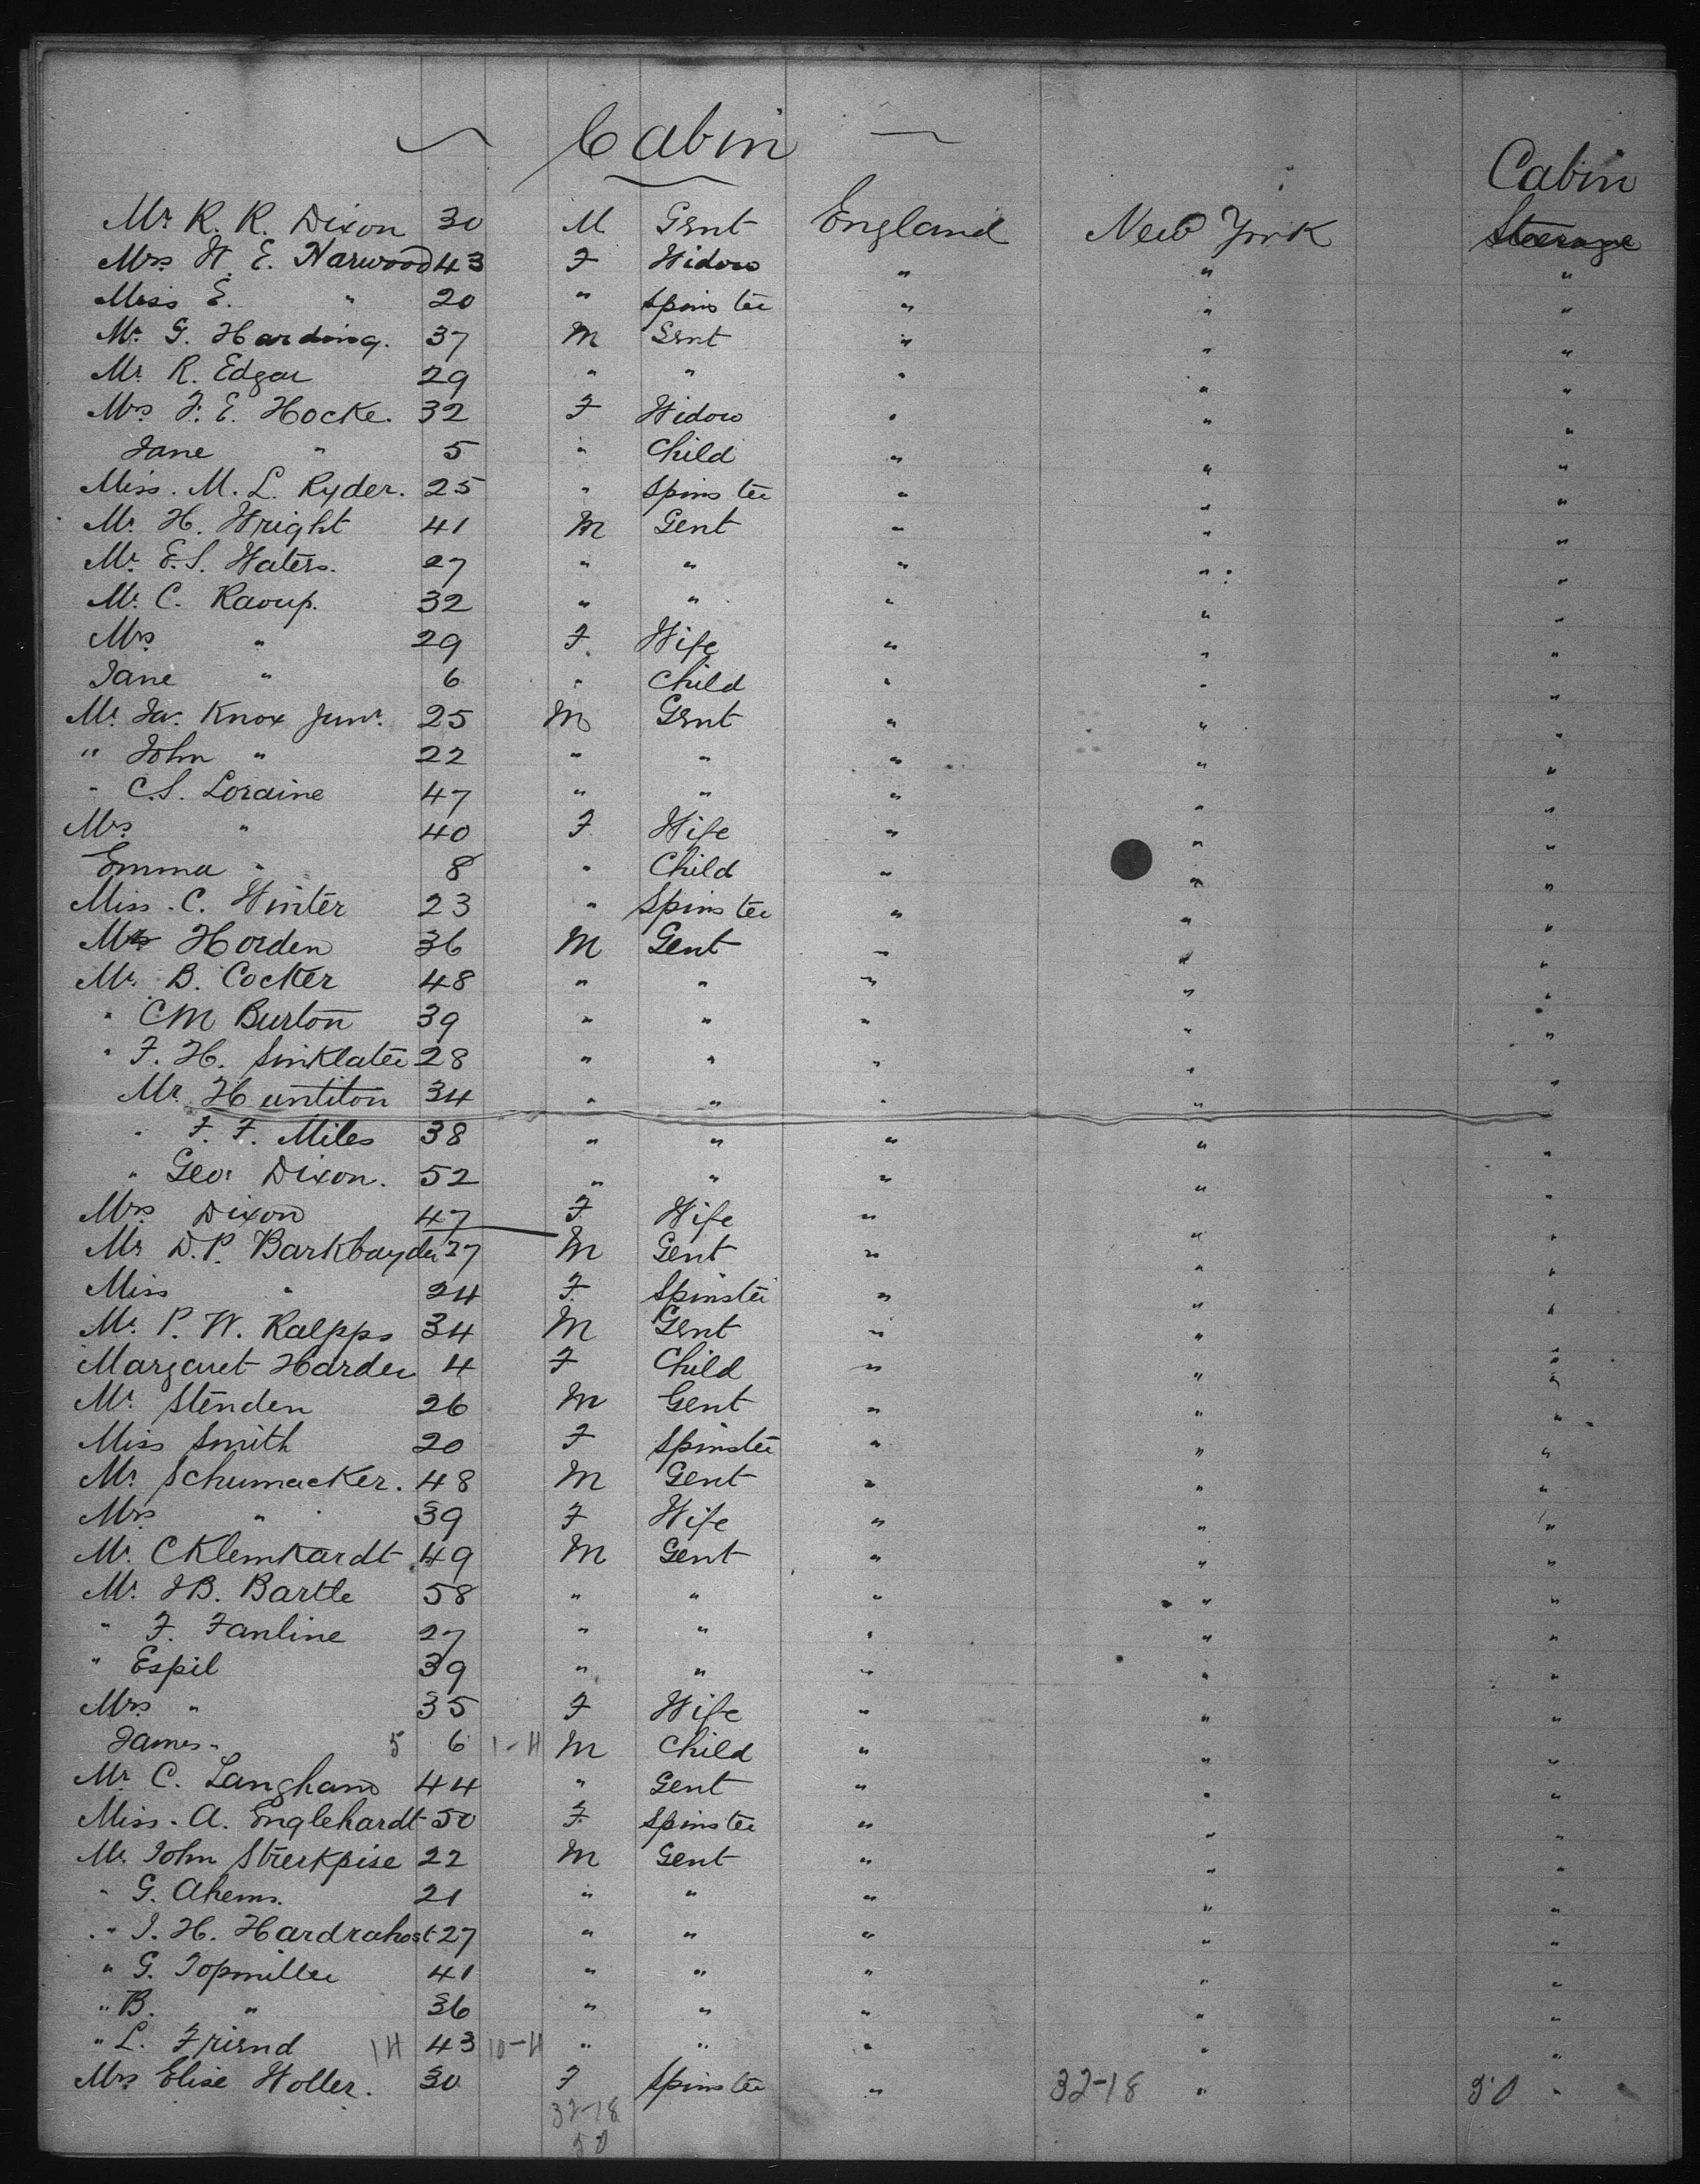 Cabin
Cabin
Mr R. R. Dixon 30 M Gent England New York Steerage
Mrs W. E. Narwood 43 F Widow " " "
Miss E. " 20 " Spinster " " "
Mr G. Harding. 37 M Gent " " "
Mr R. Edgar 29 " " " " "
Mrs F. E. Hocke. 32 F Widow " " "
Jane " 5 " Child " " "
Miss. M. L. Ryder. 25 " Spinster " " "
Mr H. Wright 41 M Gent " " "
Mr. E. S. Waters. 27 " " " " "
Mr. C. Raoup. 32 " " " " "
Mrs " 29 F. Wife " " "
Jane " 6 " Child " " "
Mr. Ja. Knox Junr. 25 M Gent " " "
" John " 22 " " " " "
" C. S. Loraine 47 " " " " "
Mrs " 40 F Wife " " "
Emma " 8 " Child " " "
Miss. C. Winter 23 " Spinster " " "
Mr Horden 36 M Gent " " "
Mr. B. Cocker 48 " " " " "
" C M Burton 39 " " " " "
" F. H. Sinklater 28 " " " " "
Mr Huntiton 34 " " " " "
" F. F. Miles 38 " " " " "
" Geo. Dixon. 52 " " " " "
Mrs Dixon 47 F Wife " " "
Mr D. P. Barkbayder 27 M Gent " " "
Miss " 24 F. Spinster " " "
Mr. P. W. Ralpps 34 M Gent " " "
Margaret Harder 4 F Child " " "
Mr. Stenden 26 M Gent " " "
Miss Smith 20 F Spinster " " "
Mr. Schumacker. 48 M Gent " " "
Mrs " 39 F Wife " " "
Mr. C Klemkardt 49 M Gent " " "
Mr. J B. Bartle 58 " " " " "
" F. Fanline 27 " " " " "
" Espil 39 " " " " "
Mrs " 35 F Wife " " "
James " 5 6 1-H M Child " " "
Mr C. Langhans 44 " Gent " " "
Miss. A. Englehardt 50 F Spinster " " "
Mr. John Streckpise 22 M Gent " " "
" G. Ahems. 21 " " " " "
" J. H. Hardrahost 27 " " " " "
" G. Topmiller 41 " " " " "
" B. " 36 " " " " "
" L. Friend 1H 43 10-H " " " " "
Mrs Elise Woller. 30 F Spinster " 32-18 " 50 "
32-18
50